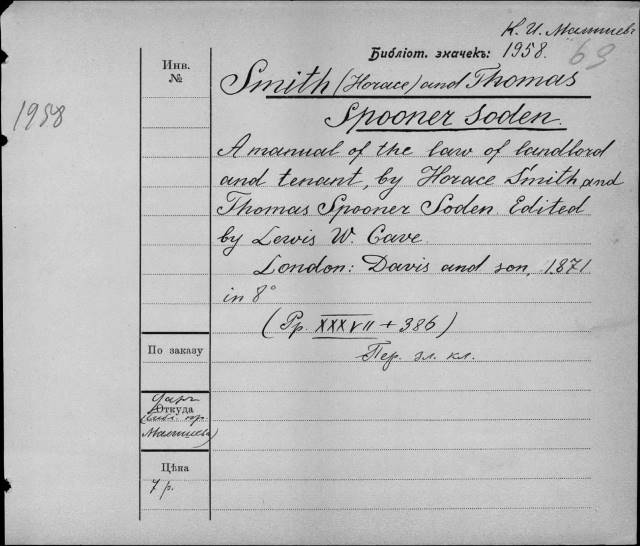 К. И. Малышева
Библіот. значекъ: 1958.
63
Инв.
№
1958
Smith (Horace) and Thomas
Spooner Soden.
A manual of the law of landlord
and tenant, by Horace Smith and
Thomas Spooner Soden. Edited
by Lewis W. Cave.
London: Davis and son, 1871
in 8°
(Pp. XXXVII + 386)
Пер. эл. кл.
По заказу
Откуда
Малышева)
Цѣна
7 р.